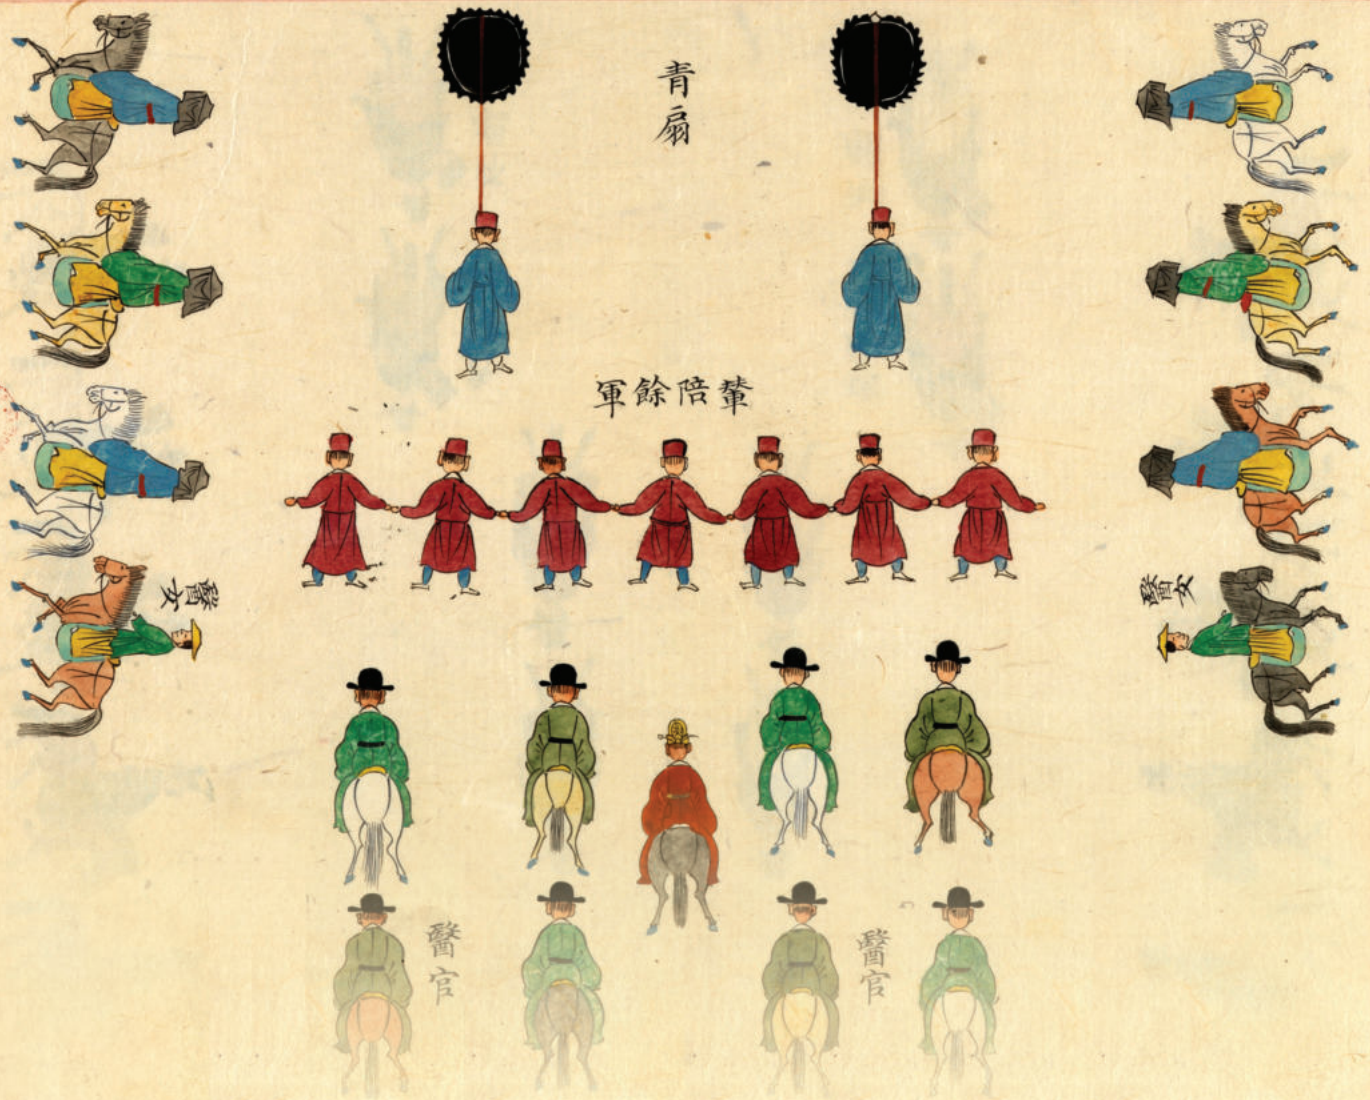 青扇
輦陪餘軍
醫女
醫女
醫官
醫官